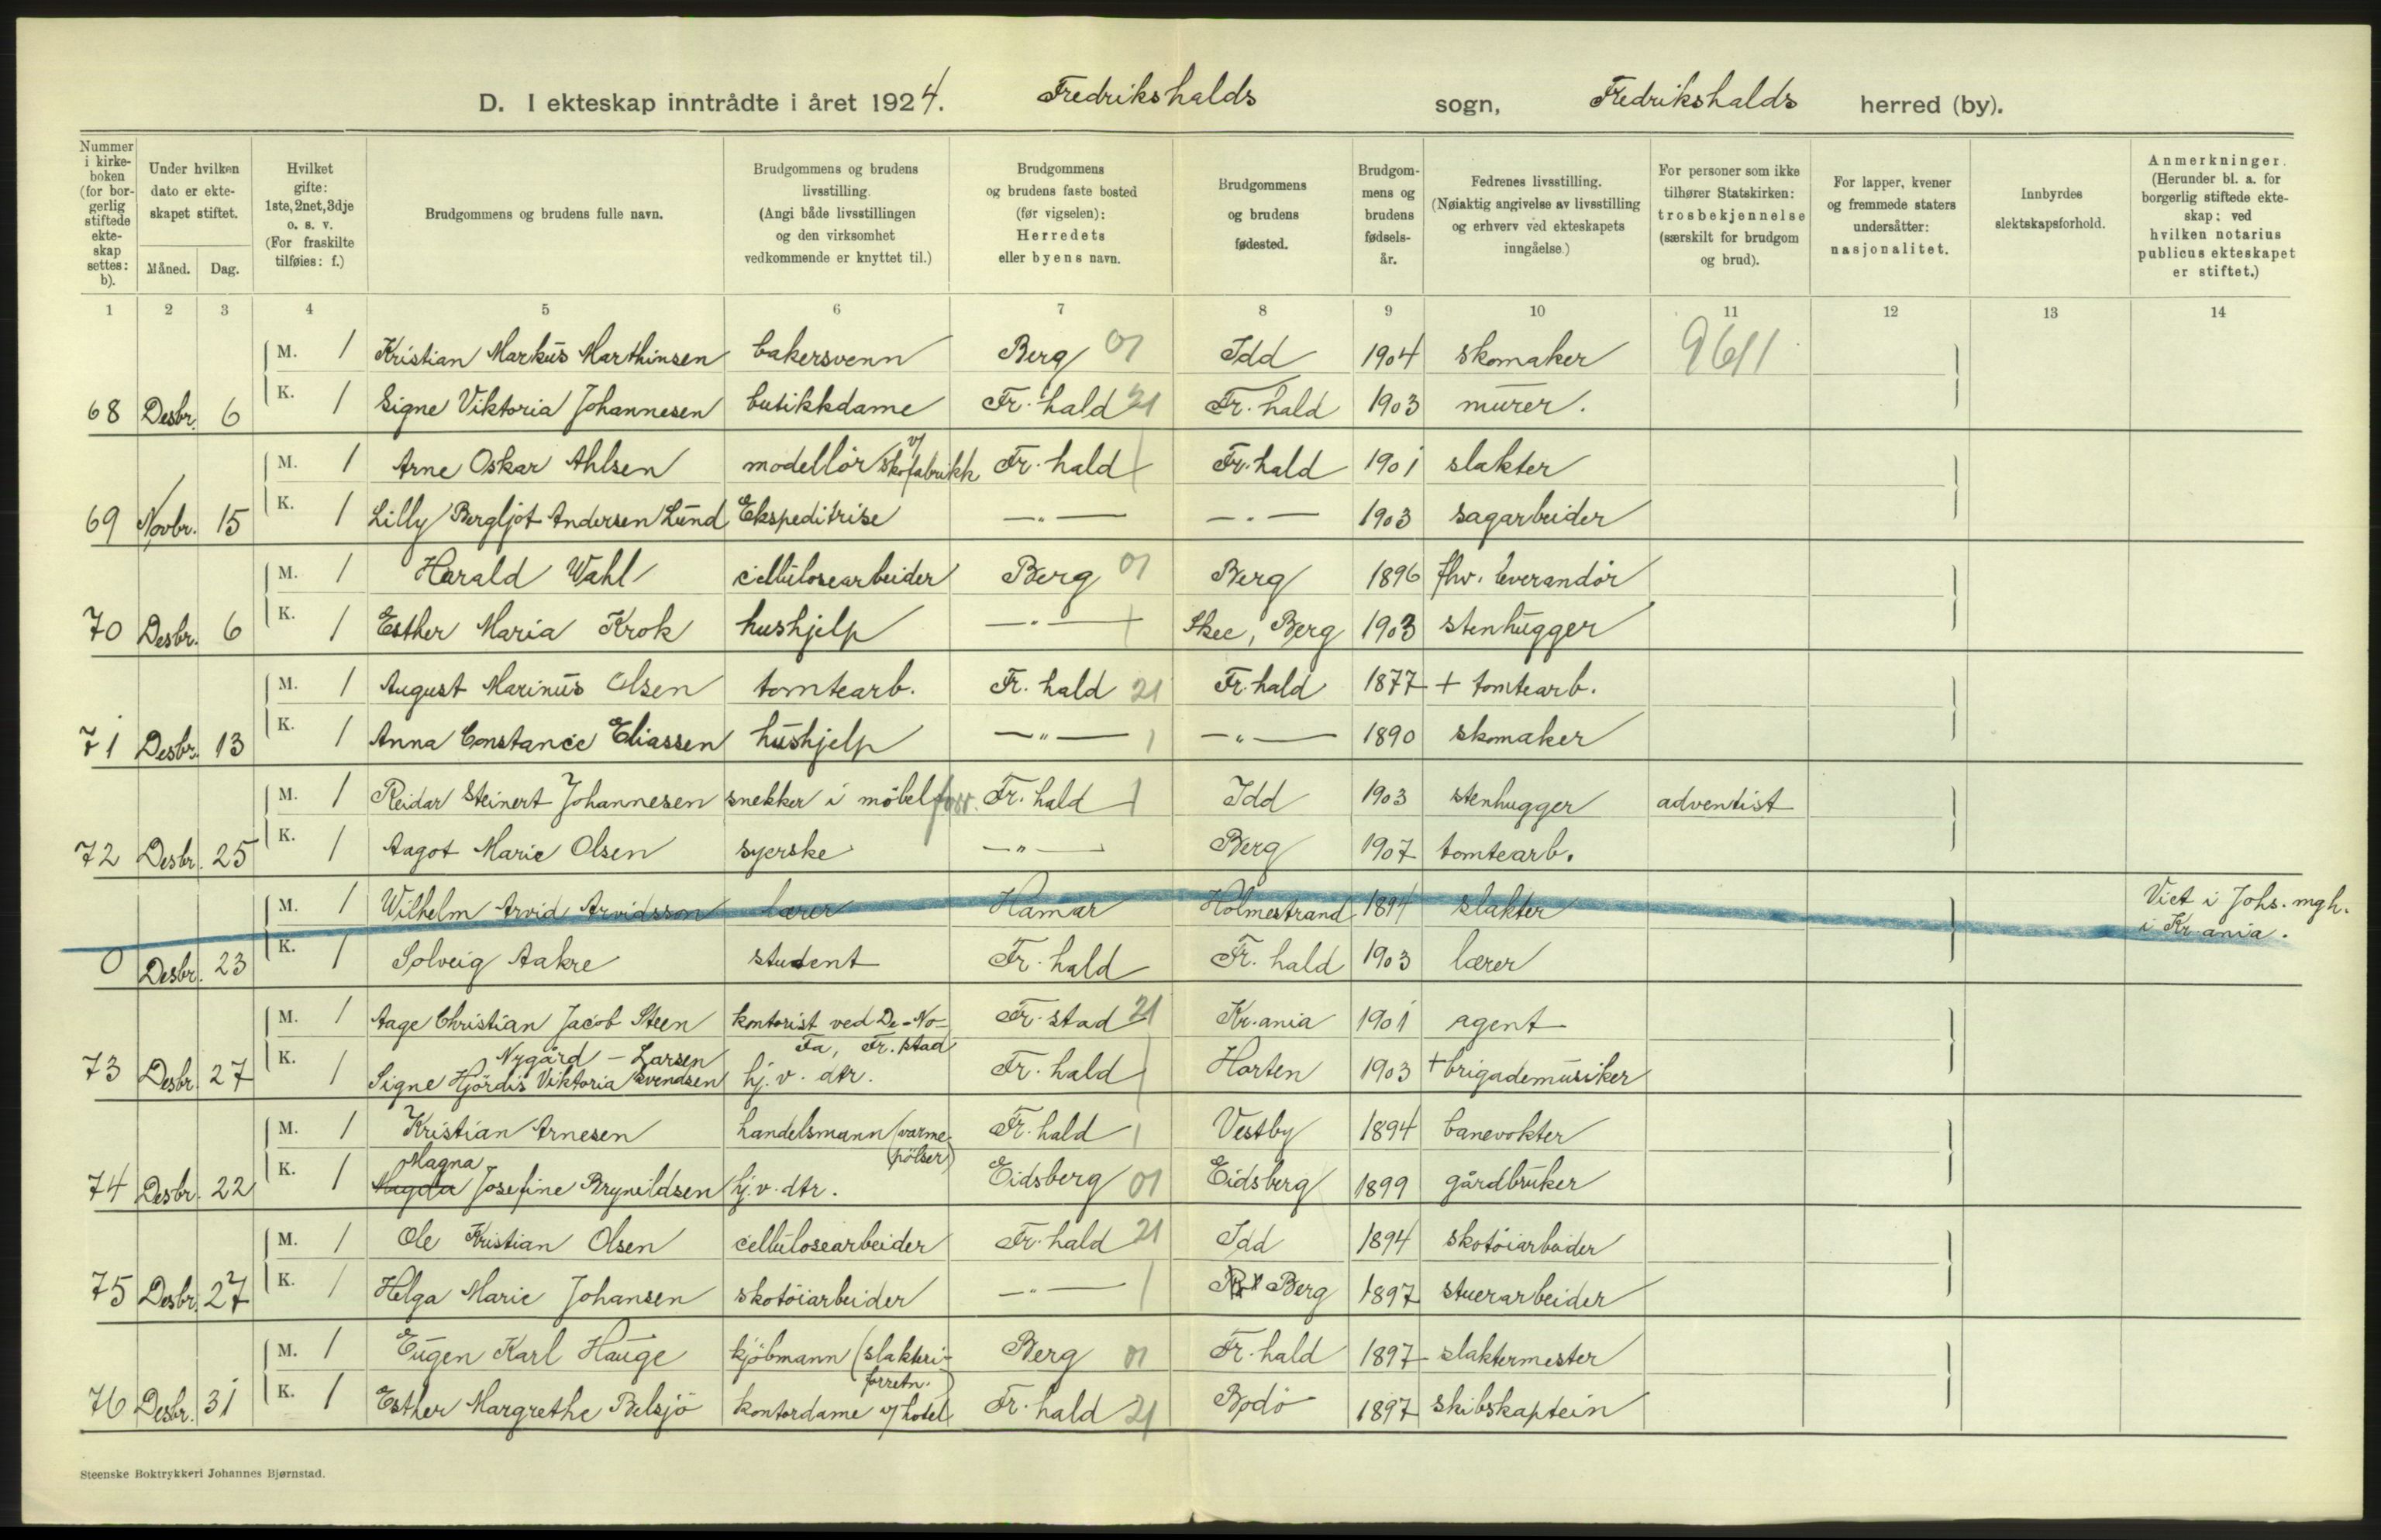 D. I ekteskap inntrådte i året 1924. Fredrikshalds sogn, Fredrikshalds herred (by).
Nummer i kirke- boken (for bor- gerlig stiftede ekte- skap settes: b).
Under hvilken dato er ekte- skapet stiftet.
Måned. Dag.
Hvilket gifte: 1ste, 2net, 3dje o. s. v. (For fraskilte tilføies: f.)
Brudgommens og brudens fulle navn.
Brudgommens og brudens livsstilling. (Angi både livsstillingen og den virksomhet vedkommende er knyttet til.)
Brudgommens og brudens faste bosted (før vigselen): Herredets eller byens navn.
Brudgommens og brudens fødested.
Brudgom- mens og brudens fødsels- år.
Fedrenes livsstilling. (Nøiaktig angivelse av livsstilling og erhverv ved ekteskapets inngåelse.)
For personer som ikke tilhører Statskirken: trosbekjennelse (særskilt for brudgom og brud).
For lapper, kvener og fremmede staters undersåtter: nasjonalitet.
Innbyrdes slektskapsforhold.
Anmerkninger. (Herunder bl. a. for borgerlig stiftede ekte- skap: ved hvilken notarius publicus ekteskapet er stiftet.)
1 2 3 4 5 6 7 8 9 10 11 12 13 14
M. 1 Kristian Markus Marthinsen bakersvenn Berg 01 Idd 1904 skomaker 9611
68 Desbr. 6 K. 1 Signe Viktoria Johannesen butikkdame Fr.hald 21 Fr.hald 1903 murer.
M. 1 Arne Oskar Ahlsen modellør v/ skofabrikk Fr.hald Fr.hald 1901 slakter
69 Novbr. 15 K. 1 Lilly Bergljot Andersen Lund Ekspeditrise —"— —"— 1903 sagarbeider
M. 1 Harald Wahl cellulosearbeider Berg 01 Berg 1896 fhv. leverandør
70 Desbr. 6 K. 1 Esther Maria Krok hushjelp —"— Skee, Berg 1903 stenhugger
M. 1 August Marinus Olsen tomtearb. Fr. hald 21 Fr.hald 1877 + tomtearb.
71 Desbr. 13 K. 1 Anna Constance Eliassen hushjelp —"— 1 —"— 1890 skomaker
M. 1 Reidar Steinert Johannesen snekker i møbelforr. Fr. hald 1 Idd 1903 stenhugger adventist
72 Desbr. 25 K. 1 Aagot Marie Olsen syerske —"— Berg 1907 tomtearb.
M. 1 Wilhelm Arvid Arvidsson lærer Hamar Holmestrand 1894 slakter Viet i Johs. mgh.
i Kr ania.
0 Desbr. 23 K. 1 Solveig Aakre student Fr. hald Fr. hald 1903 lærer
M. 1 Aage Christian Jacob Steen kontorist ved De-No- Fr.stad 21 Kr.ania 1901 agent
Fa, Fr.stad
Nygård - Larsen
73 Desbr. 27 K. 1 Signe Hjördis Viktoria Svendsen hj. v. dtr. Fr. hald Horten 1903 + brigademusiker
M. 1 Kristian Arnesen handelsmann (varme Fr. hald 1 Vestby 1894 banevokter
pölser)
Magna
74 Desbr. 22 K. 1 Magda Josefine Brynildsen hj. v. dtr. Eidsberg 01 Eidsberg 1899 gårdbruker
M. 1 Ole Kristian Olsen cellulosearbeider Fr. hald 21 Idd 1894 skotøiarbeider
75 Desbr. 27 K. 1 Helga Marie Johansen skotøiarbeider —"— 1 Berg 1897 stuerarbeider
M. 1 Eugen Karl Hauge kjøbmann (slakteri- Berg 01 Fr. hald 1897 slaktermester
forretn.)
76 Desbr. 31 K. 1 Esther Margrethe Belsjö kontordame v/ hotel Fr. hald 21 Bodö 1897 skibskaptein
Steenske Boktrykkeri Johannes Bjørnstad.